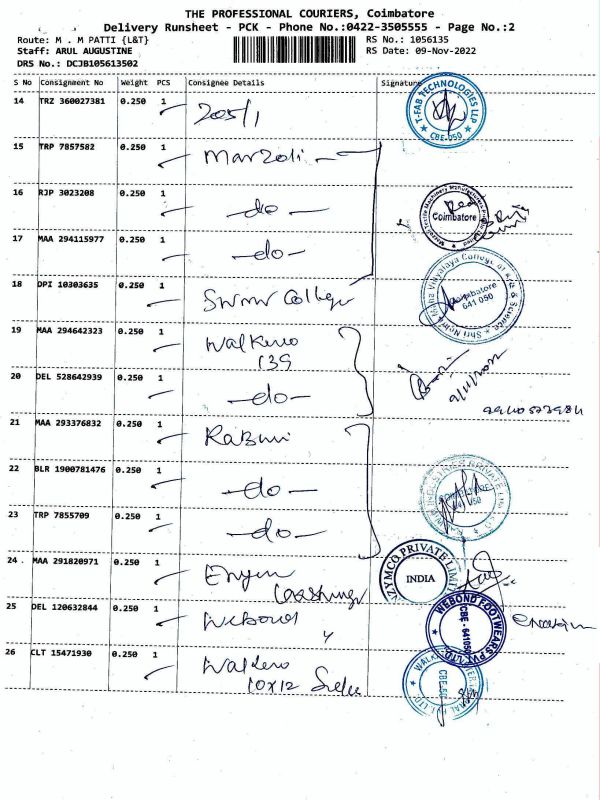 THE PROFESSIONAL COURIERS, Coimbatore
Delivery Runsheet - PCK - Phone No.:0422-3505555 - Page No.:2
Route: M . M PATTI {L&T}
RS No.: 1056135
Staff: ARUL AUGUSTINE
RS Date: 09-Nov-2022
DRS No.: DCJB105613502
S No Consignment No Weight PCS Consignee Details Signature
14 TRZ 360027381 0.250 1 205/1
T-FAB TECHNOLOGIES LLP
CBE-050
15 TRP 7857582 0.250 1 Marzoli
16 RJP 3023208 0.250 1 -do-
Coimbatore
17 MAA 294115977 0.250 1 -do-
18 DPI 10303635 0.250 1 SNMV College
Coimbatore
641 050
19 MAA 294642323 0.250 1
139
9/11/2022
20 DEL 528642939 0.250 1 -do-
21 MAA 293376832 0.250 1
22 BLR 1900781476 0.250 1 -do-
23 TRP 7855709 0.250 1 -do-
24 . MAA 291820971 0.250 1
ZYMCO PRIVATE LIMITED
INDIA
25 DEL 120632844 0.250 1 Webond
WEBOND FOOTWEARS PVT LTD.
CBE - 641050
26 CLT 15471930 0.250 1
10x12